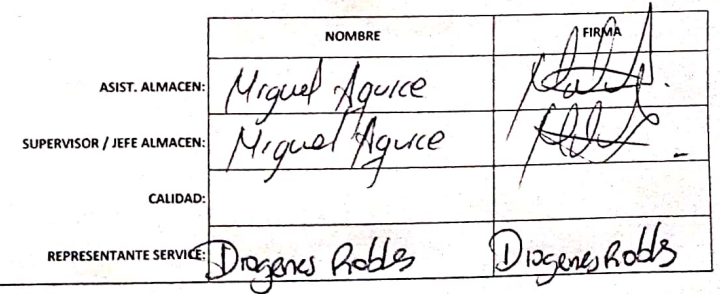 NOMBRE FIRMA
ASIST. ALMACEN: Miguel Aguice
SUPERVISOR / JEFE ALMACEN: Miguel Aguice
CALIDAD:
REPRESENTANTE SERVICE: Diogenes Robles Diogenes Robles